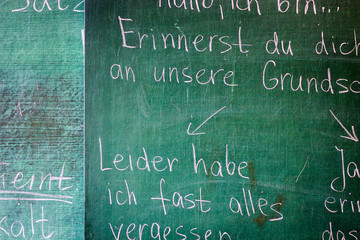 Satz
Hallo, ich bin...
Erinnerst du dich
an unsere Grundsc
Leider habe
ich fast alles
vergessen
Ja
eri
eint
kalt